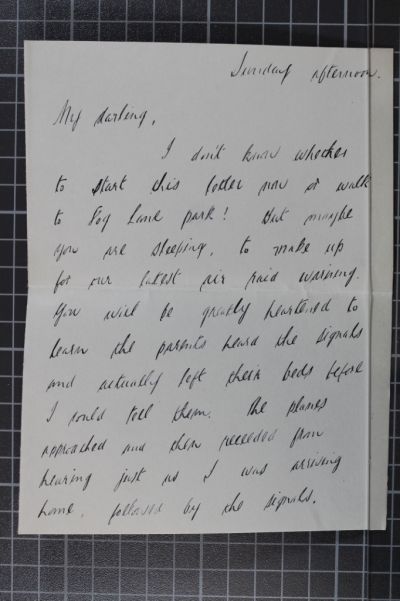 Sunday afternoon.
My darling,
I don't know whether
to start this letter now or walk
to Fog Lane park! But maybe
you are sleeping, to make up
for our latest air raid warning.
You will be greatly heartened to
learn the parents heard the signals
and actually left their beds before
I could tell them. The planes
approached and then receeded from
hearing just as I was arriving
home, followed by the signals.